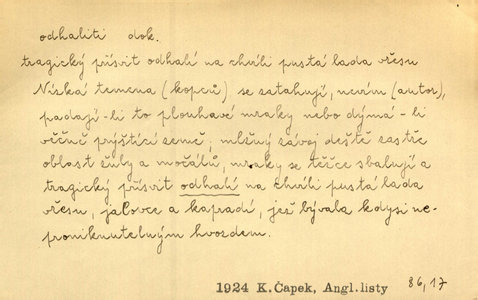 odhaliti dok.
tragický přísvit odhalí na chvíli pustá lada vřesu
Nízká temena (kopců) se zatahují, nevím (autor),
padají-li to plouhavé mraky nebo dýmá-li
věčně prýštící země; mlžný závoj deště zastře
oblast žuly a močálů, mraky se těžce sbalují a
tragický přísvit odhalí na chvíli pustá lada
vřesu, jalovce a kapradí, jež bývala kdysi ne-
proniknutelným hvozdem.
1924 K.Čapek, Angl.listy 86,17